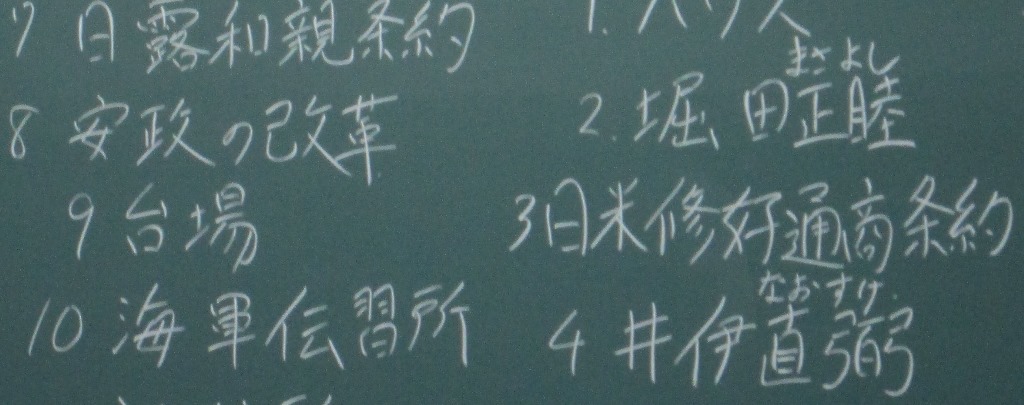 7 日露和親条約
8 安政の改革
9 台場
10 海軍伝習所
1. ハリス
まさよし
2. 堀田正睦
3 日米修好通商条約
なおすけ
4 井伊直弼